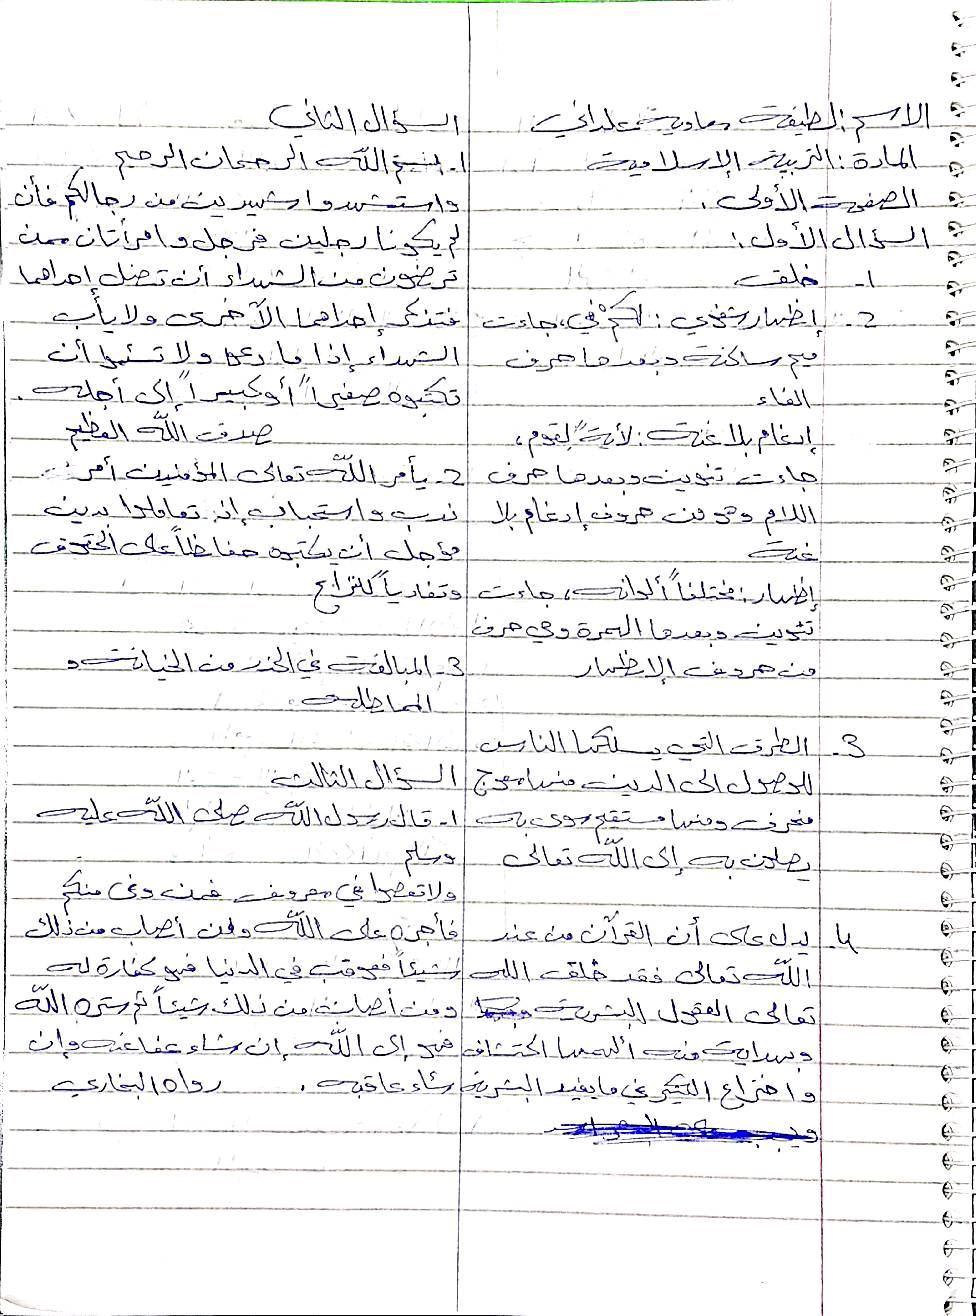 الاسم: لطيفة معاوية علداني
المادة: التربية الإسلامية
الصفحة الأولى.
السؤال الأول:
1- خلقت
2- إظهار شفوي: لكم في، جاءت
ميم ساكنة وبعدها حرف
الفاء
إدغام بلا غنة: لأية لقوم،
جاءت تنوين وبعدها حرف
اللام وهو من حروف إدغام بلا
غنة
إظهار: مختلفاً ألوانه، جاءت
تنوين وبعدها الهمزة وهي حرف
من حروف الإظهار
3- الطرق التي يسلكها الناس
للوصول الى الدين منها معوج
منحرف ومنها مستقيم سوي به
يصلون به إلى الله تعالى
4- يدل على أن القرآن من عند
الله تعالى فقد خلقت الله
تعالى العقول البشرية
وبهداية منه ألهمها اكتشاف
واختراع الكثير في ما يفيد البشرية
السؤال الثاني
1- بسم الله الرحمان الرحيم
واستشهدوا شهيدين من رجالكم فأن
لم يكونا رجلين فرجل وامرأتان ممن
ترضون من الشهداء أن تضل إحداهما
فتذكر إحداهما الآخرى ولا يأب
الشهداء إذا ما دعوا ولا تسئموا أن
تكتبوه صغيراً أو كبيراً إلى أجله.
صدق الله العظيم
2- يأمر الله تعالى المؤمنين أمر
ندب واستحباب إن تعاملوا بدين
مؤجل أن يكتبوه حفاظاً على الحقوق
وتفادياً للنزاع
3- المبالغة في الحذر من الخيانة و
المماطلة.
السؤال الثالث
1- قال رسول الله صلى الله عليه
وسلم
ولا تعصوا في معروف فمن وفى منكم
فأجره على الله ومن أصاب من ذلك
شيئاً فعوقب في الدنيا فهو كفارة له
ومن أصاب من ذلك شيئاً ثم ستره الله
فهو إلى الله إن شاء عفا عنه وإن
شاء عاقبه. رواه البخاري